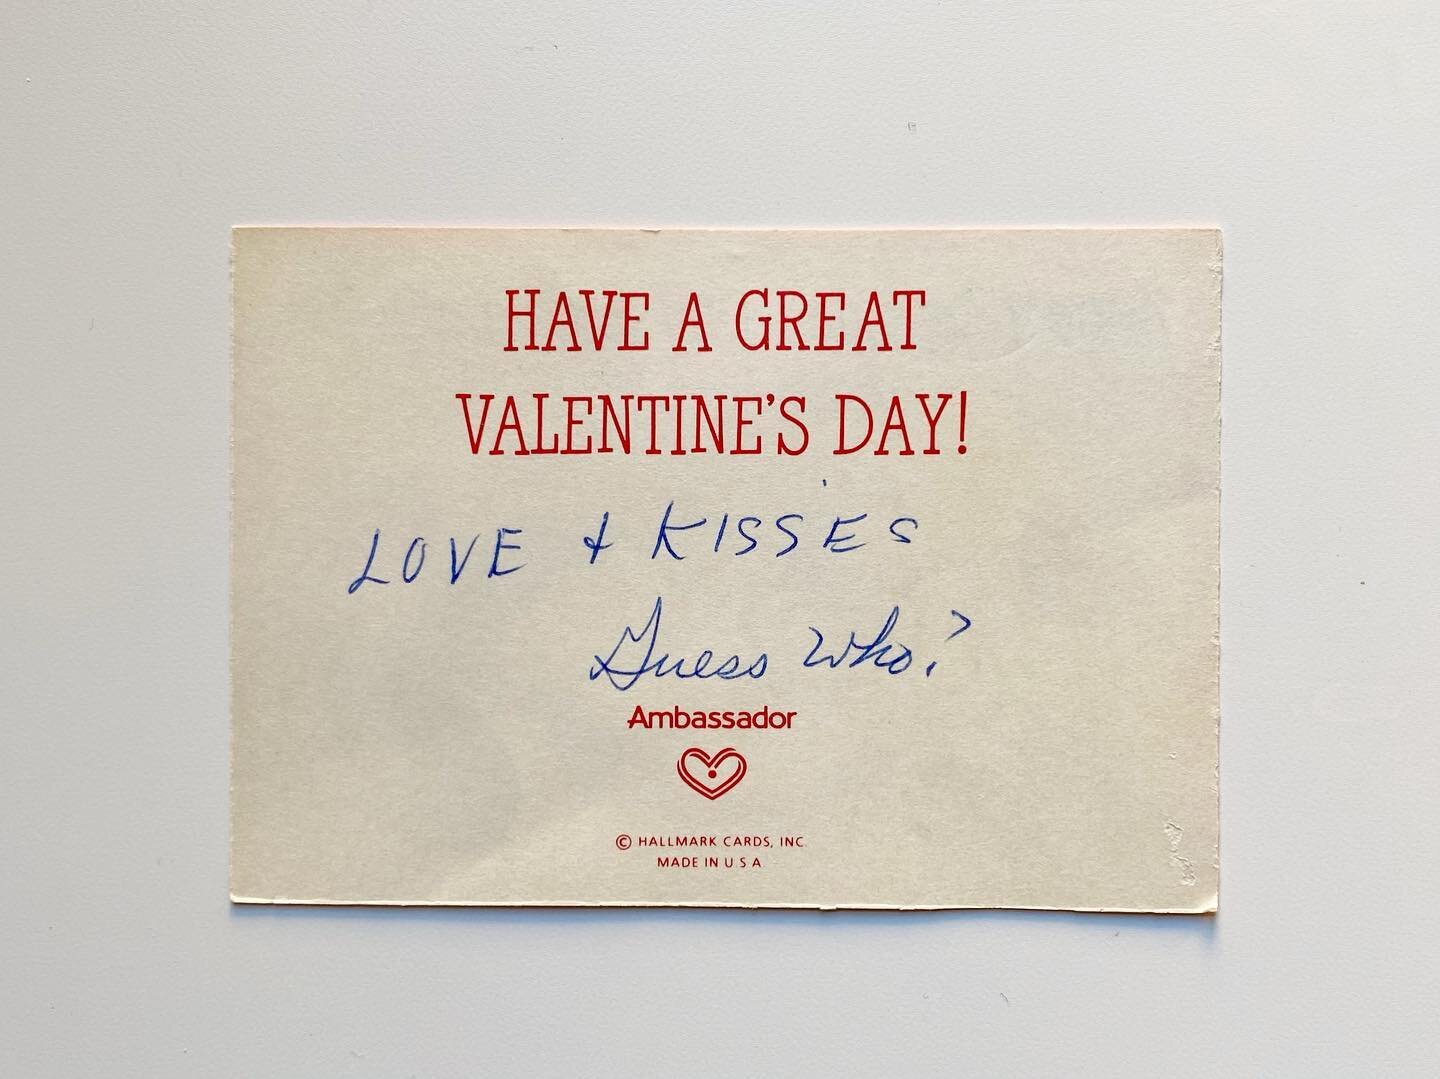 HAVE A GREAT
VALENTINE'S DAY!
LOVE + KISSES
Guess Who?
Ambassador
© HALLMARK CARDS, INC.
MADE IN U S A